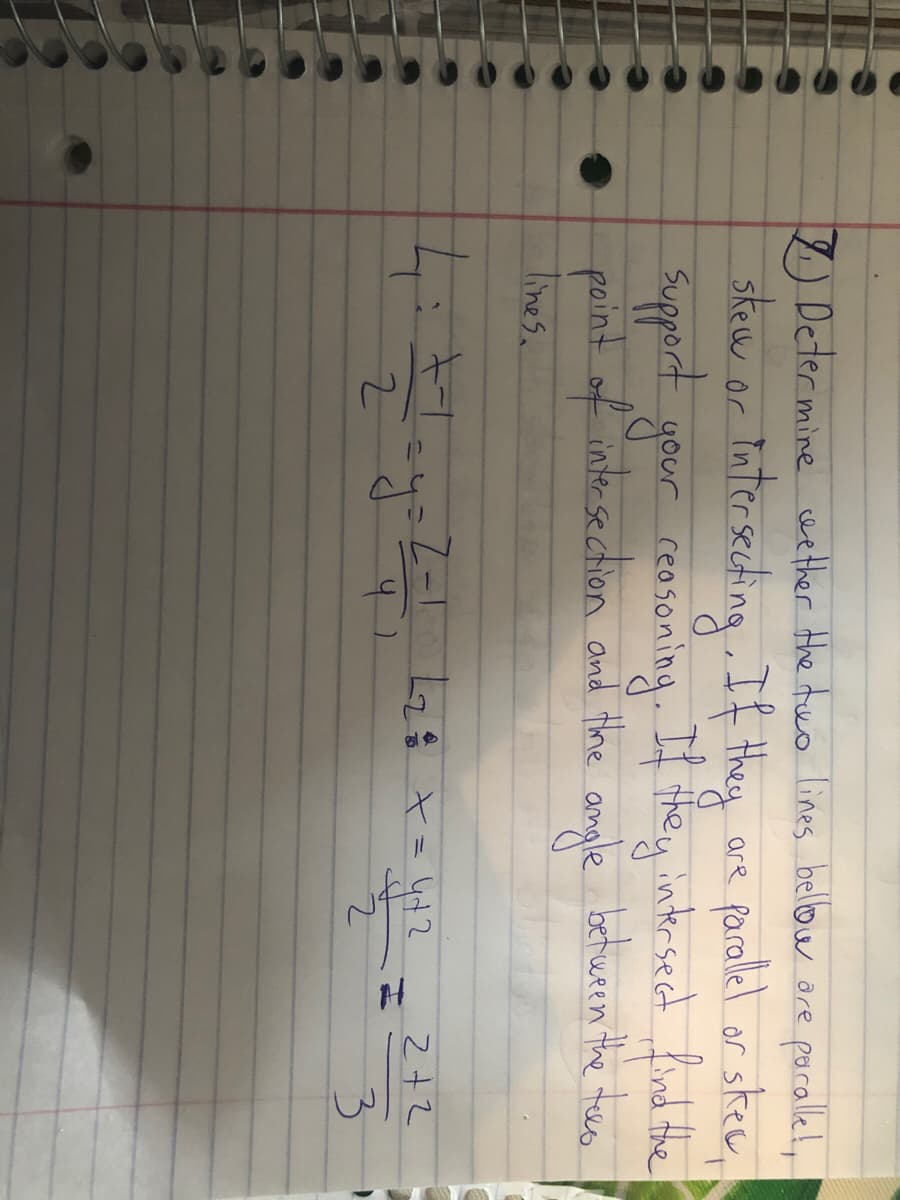 7.) Determine wether the two lines bellow are parallel,
skew or intersecting. If they are parallel or skew,
support your reasoning. If they intersect, find the
point of intersection and the angle between the two
lines.
L1: x-1/2 = y = z-1/4, L2: x = y+2/2 = z+2/3